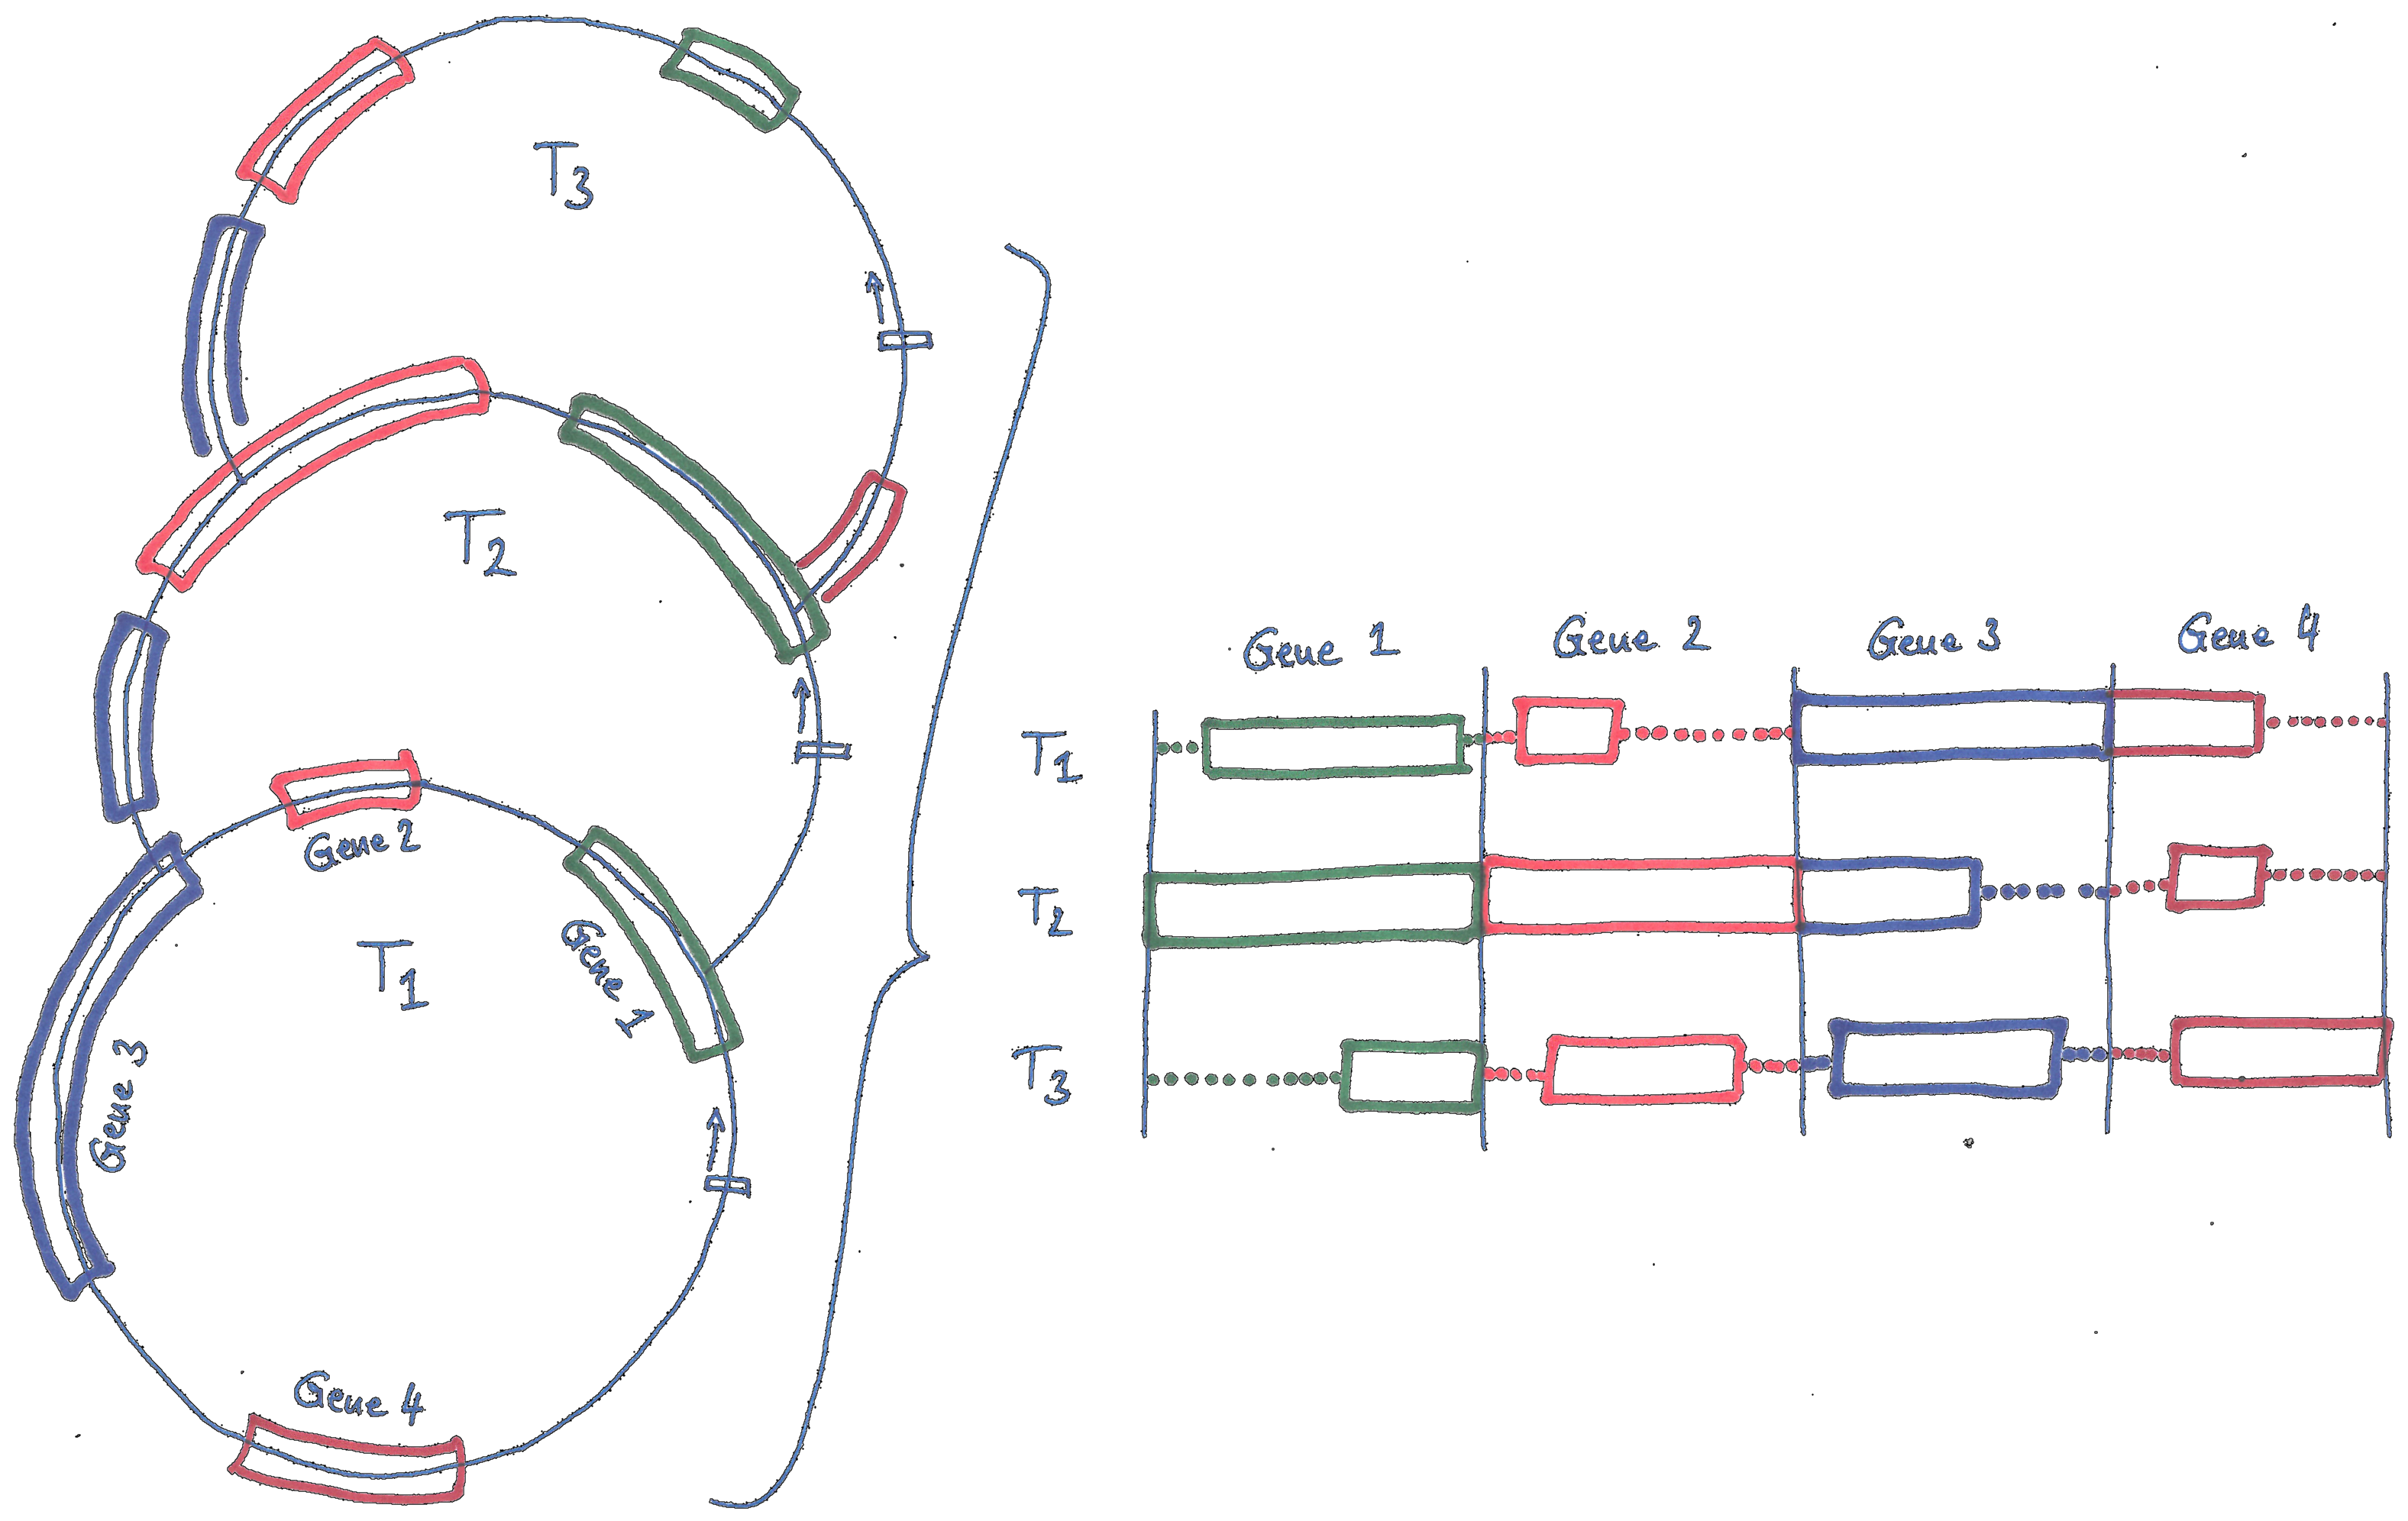 T3
T2
Gene 2
T1
Gene 1
Gene 3
Gene 4
Gene 1 Gene 2 Gene 3 Gene 4
T1
T2
T3